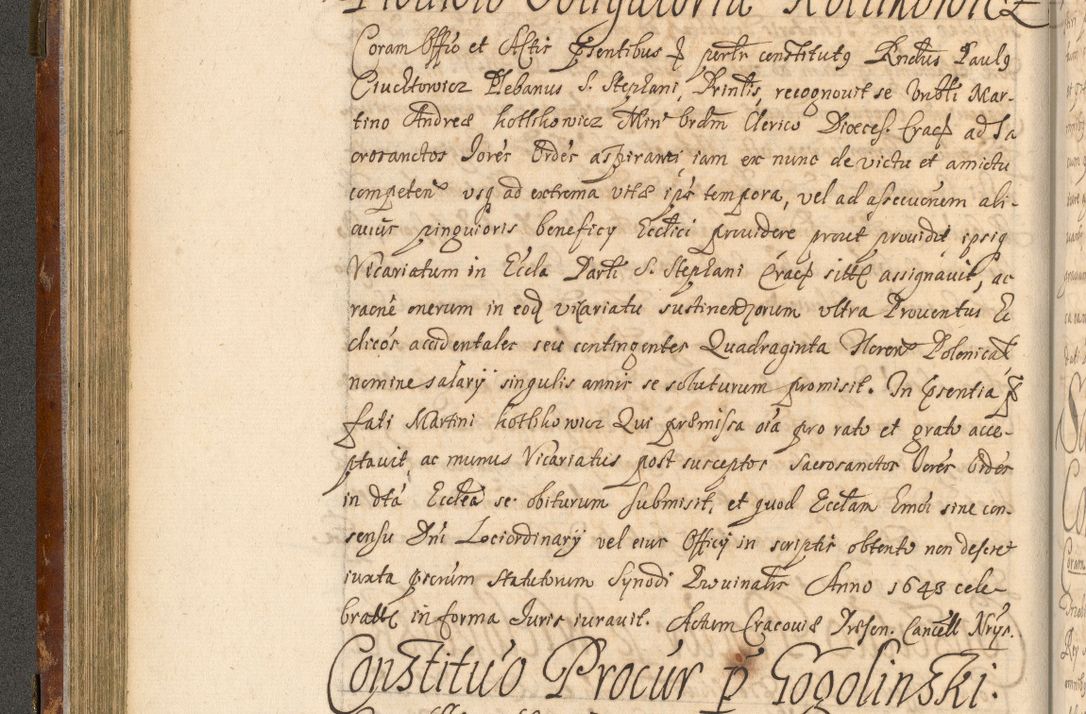 Provisio Obligatoria Kotlikowicz
Coram Offio et Actis psentibus p pertr constitutq Rndus Paulq
Ciuchtowicz Plebanus S. Stephani, Printis, recognouit se Vnbli Mar-
tino Andreæ Kotlikowicz Min brdm Clerico Dioeces. Crac ad Sa
crosanctos Jores Ordes aspiranti iam ex nunc de victu et amictu
competen vsq ad extrema vitæ ips tempora, vel ad assecuonem ali-
cuius pinguioris beneficy Ecclici prouidere prout prouidit ipsiq
Vicariatum in Eccla Parli S. Stephani Crac sittt assignauit, ac
raone onerum in eod vicariatu sustinendorum vltra Prouentus Ec
clicos accidentales seu contingentes Quadraginta floren Polonical
nomine salarÿ singulis annis se soluturum promisit. In Psentia p
fati Martini Kotlikowicz Qui præmissa oia pro rato et grato acce-
ptauit, ac munus Vicariatus post susceptos Sacrosanctos Jores Ordes
in dta Ecclea se obiturum submisit, et quod Ecclam Emdi sine con-
sensu Dni Lociordinarÿ vel eius Officÿ in scriptis obtento non deseret
iuxta pscrum statutorum Synodi Prouinalis Anno 1643 cele-
bratt in forma Juris iurauit. Actum Cracouiæ Presen. Cancell Nrijs.
Constituo Procur p Gogolinski.